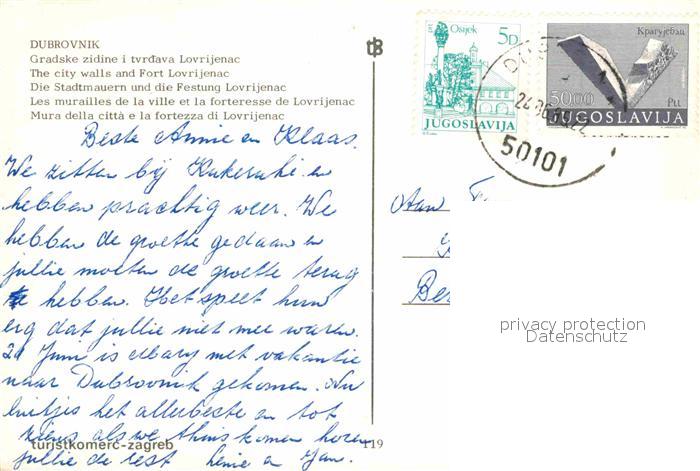 DUBROVNIK
Gradske zidine i tvrđava Lovrijenac
The city walls and Fort Lovrijenac
Die Stadtmauern und die Festung Lovrijenac
Les murailles de la ville et la forteresse de Lovrijenac
Mura della città e la fortezza di Lovrijenac
Osijek
5D
JUGOSLAVIJA
Крагујевац
5000
Ptt
JUGOSLAVIJA
50101
Beste Annie en Klaas.
We zitten bij en
hebben prachtig weer. We
hebben de groette gedaan en
jullie moeten de groette terug
hebben. Het speet hun
erg dat jullie niet mee waren.
Juni is Mary met vakantie
naar Dubrovnik gekomen. Nu
luitjes het allerbeste en tot
ziens als we thuis komen horen
jullie de rest en Jan.
Aan
turistkomerc-zagreb
119
privacy protection
Datenschutz